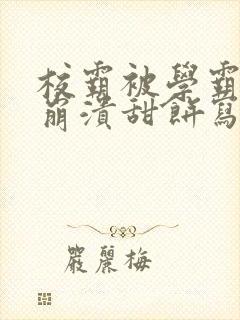 校霸被學霸
崩潰甜餅寫
嚴麗梅